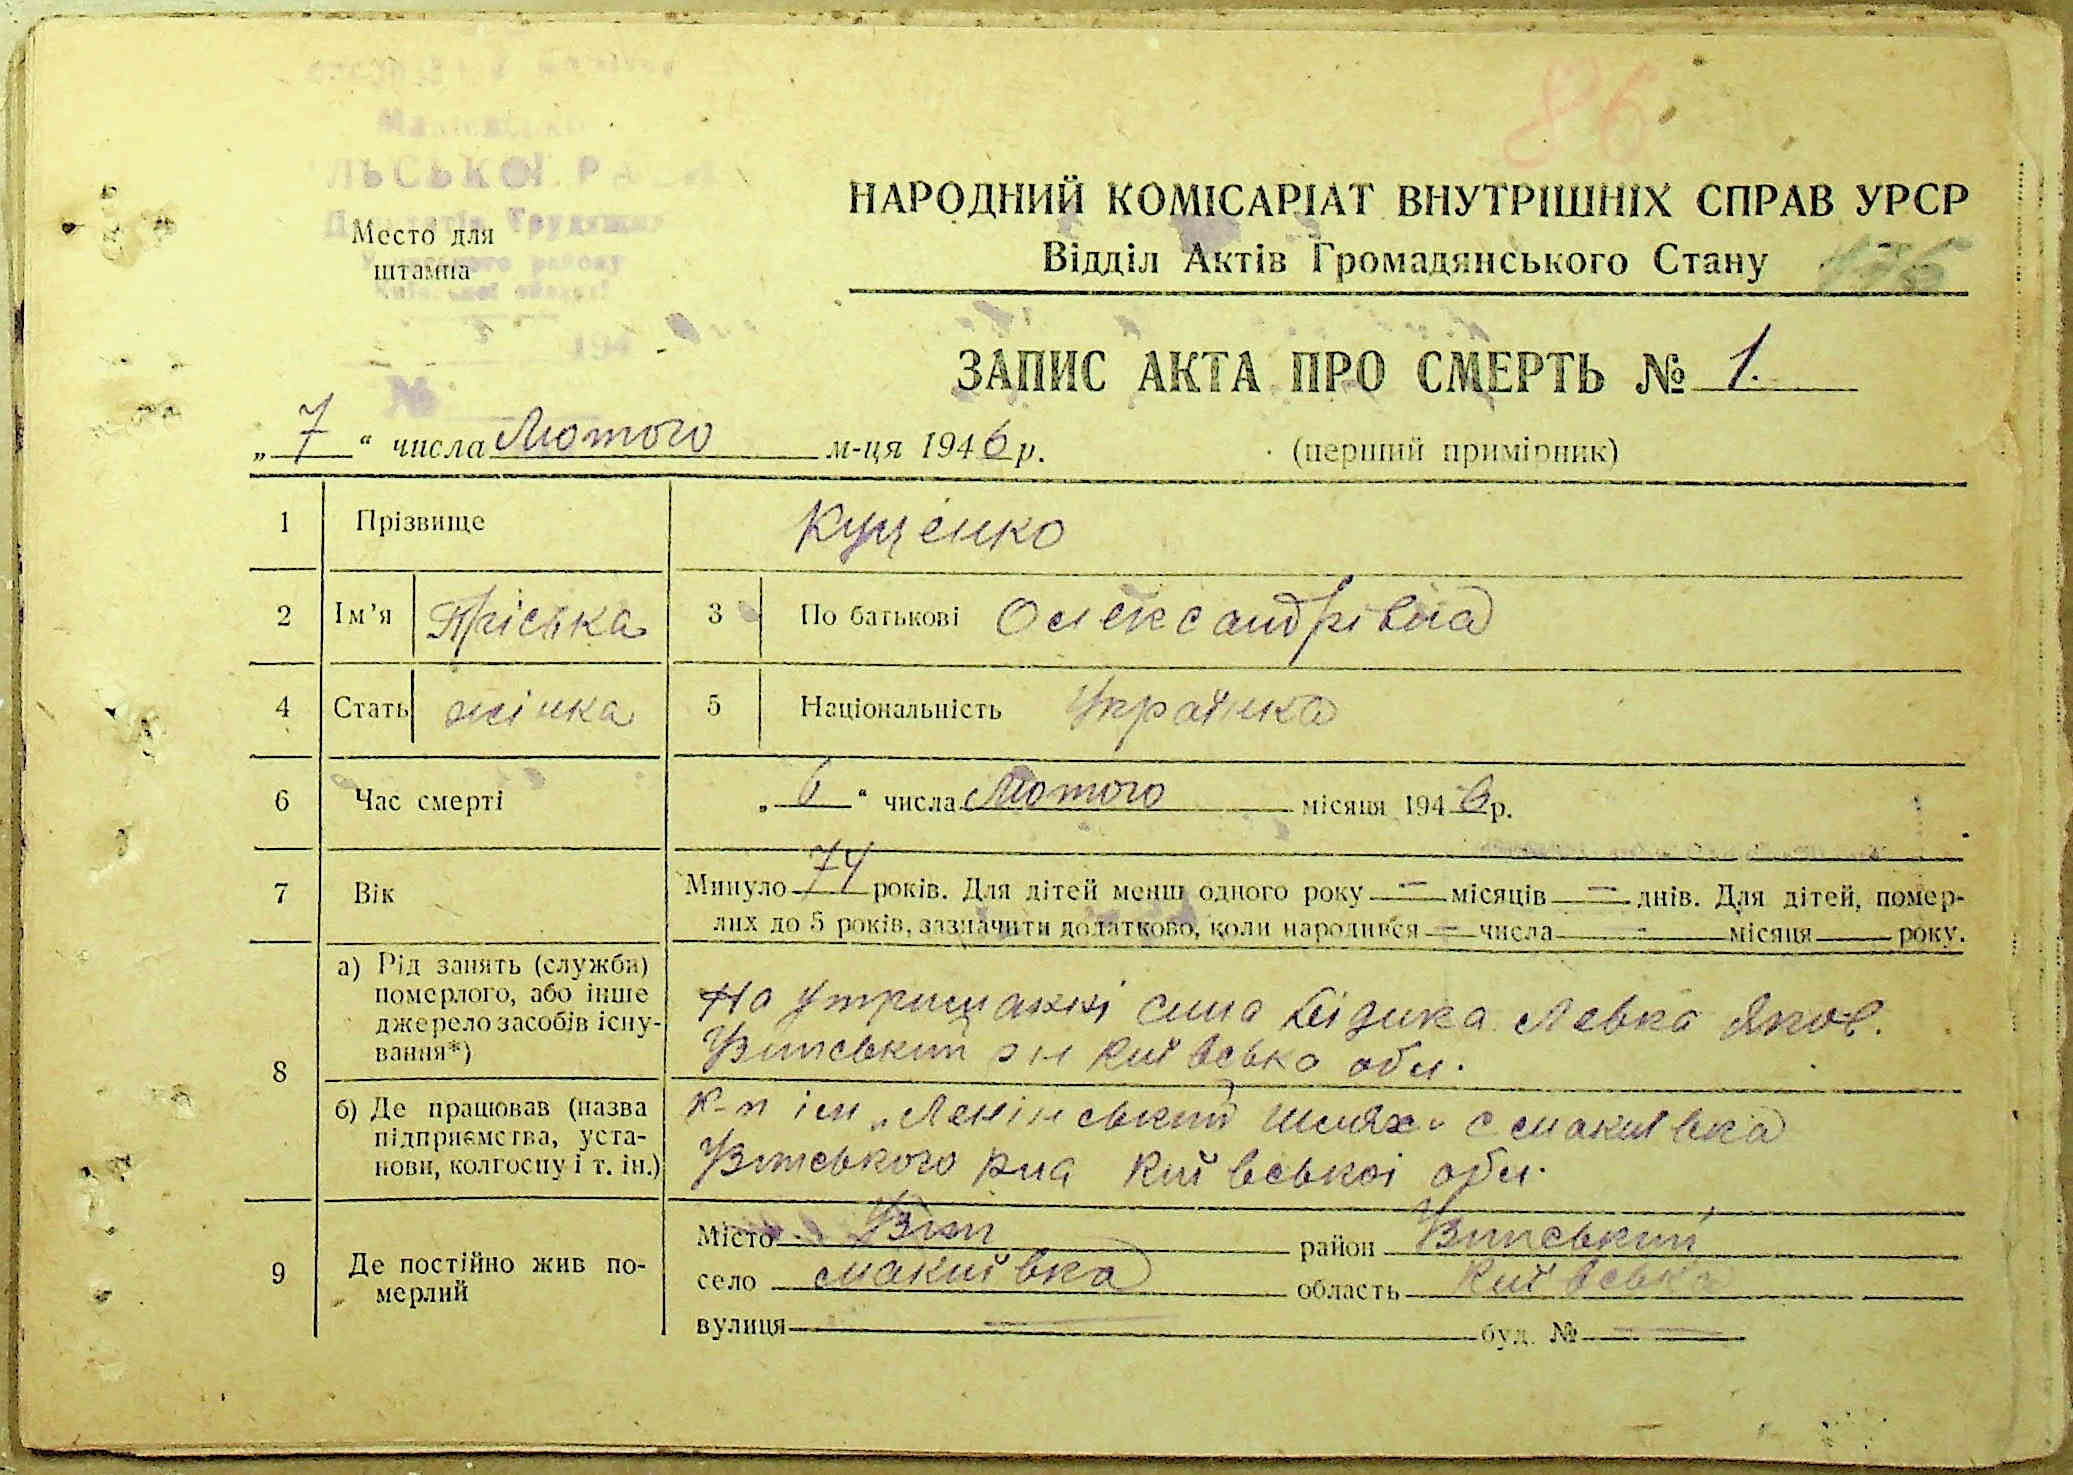 86
ЛЬСЬКОЇ РА
Депутатів Трудящих
району
Київської області
194
№
Место для
штампа
НАРОДНИЙ КОМІСАРІАТ ВНУТРІШНІХ СПРАВ УРСР
Відділ Актів Громадянського Стану
ЗАПИС АКТА ПРО СМЕРТЬ № 1.
„ 7 “ числа Лютого м-ця 1946 р.
(перший примірник)
1 Прізвище Куценко
2 Ім'я Пріська 3 По батькові Олександрівна
4 Стать жінка 5 Національність Українка
6 Час смерті „ 6 “ числа Лютого місяця 1946 р.
7 Вік Минуло 74 років. Для дітей менш одного року — місяців — днів. Для дітей, помер-
лих до 5 років, зазначити додатково, коли народився — числа - місяця року.
8 а) Рід занять (служби)
померлого, або інше
джерело засобів існу-
вання*)
На утриманні сина Левка Яков.
Київська обл.
б) Де працював (назва
підприємства, уста-
нови, колгоспу і т. ін.)
к-п ім „Ленінський шлях" с Макиївка
Київської обл.
9 Де постійно жив по-
мерлий
Місто район
село Макиївка область Київська
вулиця — буд. № —